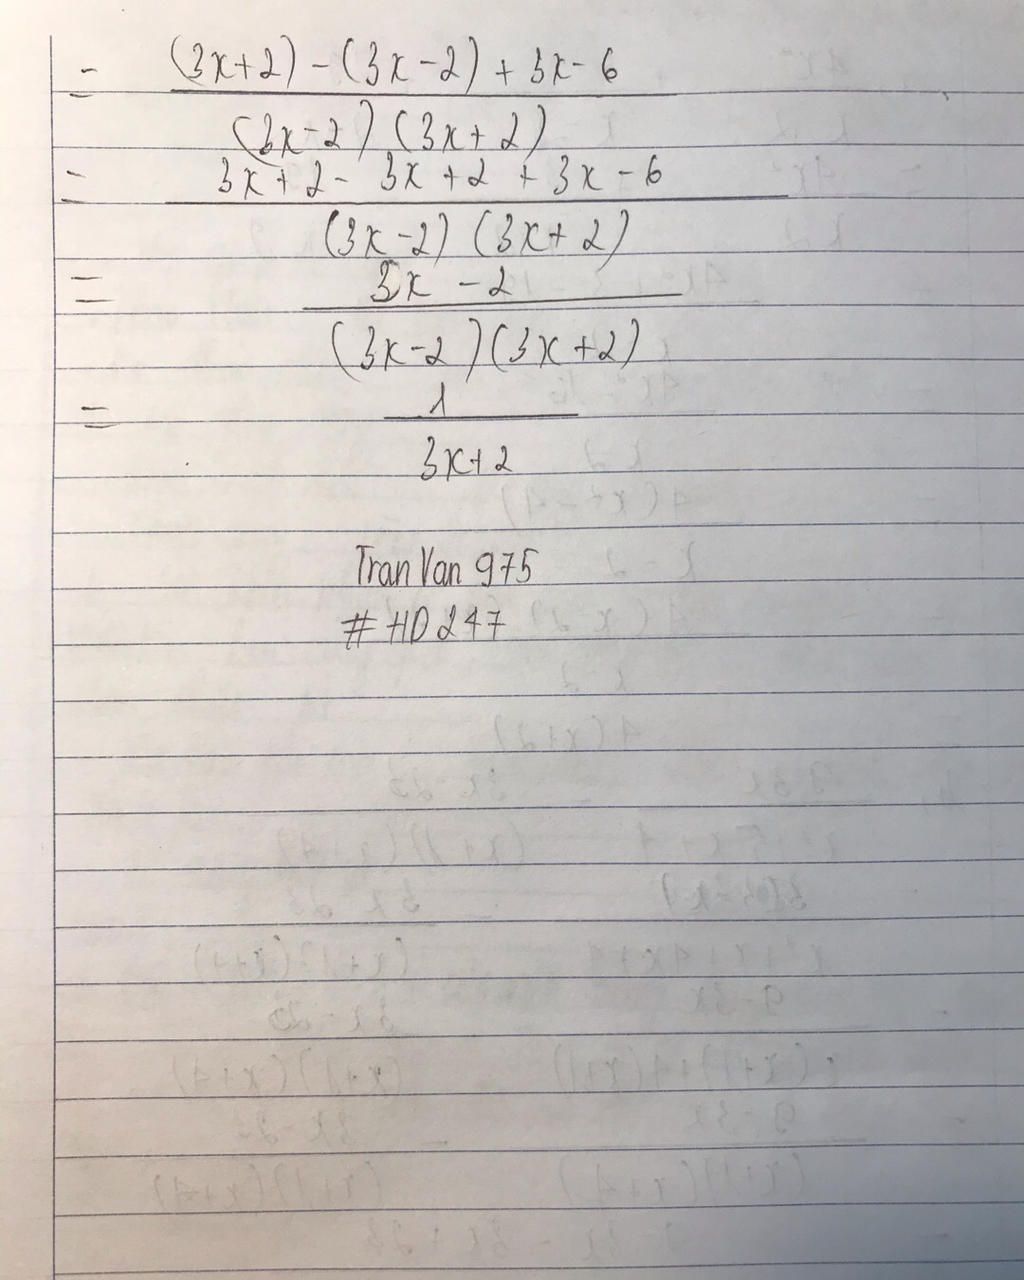 = (3x+2) - (3x-2) + 3x - 6
(3x-2) (3x+2)
= 3x + 2 - 3x + 2 + 3x - 6
(3x-2) (3x+2)
= 3x - 2
(3x-2) (3x+2)
= 1
3x+2
Tran Van 975
# HD 247